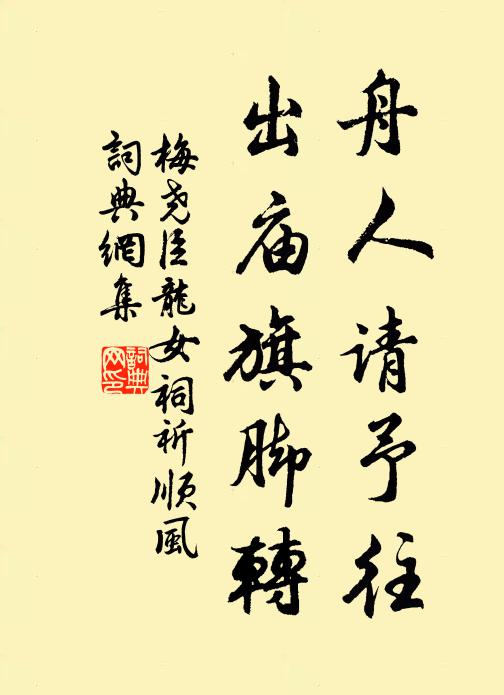 舟人请予往
出庙旗脚轉
梅尧臣龍女祠祈順風
詞典網集
詞典网印